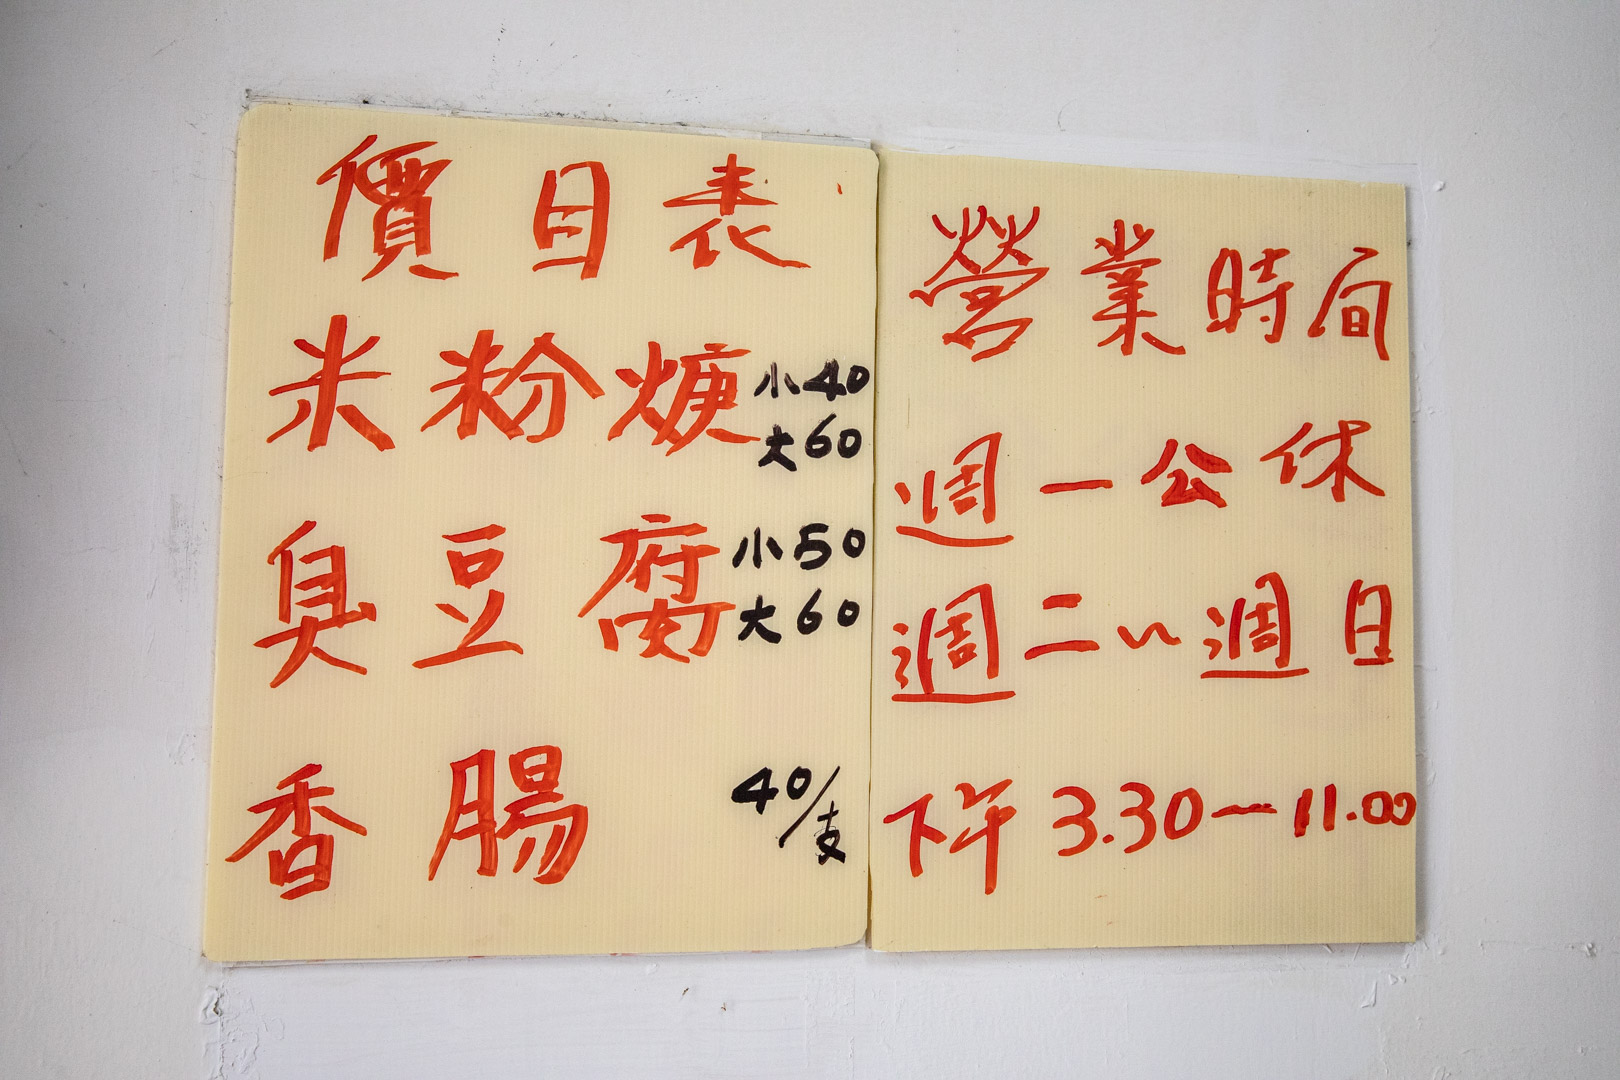 價目表
米粉焿 小40
大60
臭豆腐 小50
大60
香腸 40/支
營業時间
週一公休
週二~週日
下午3.30~11.00